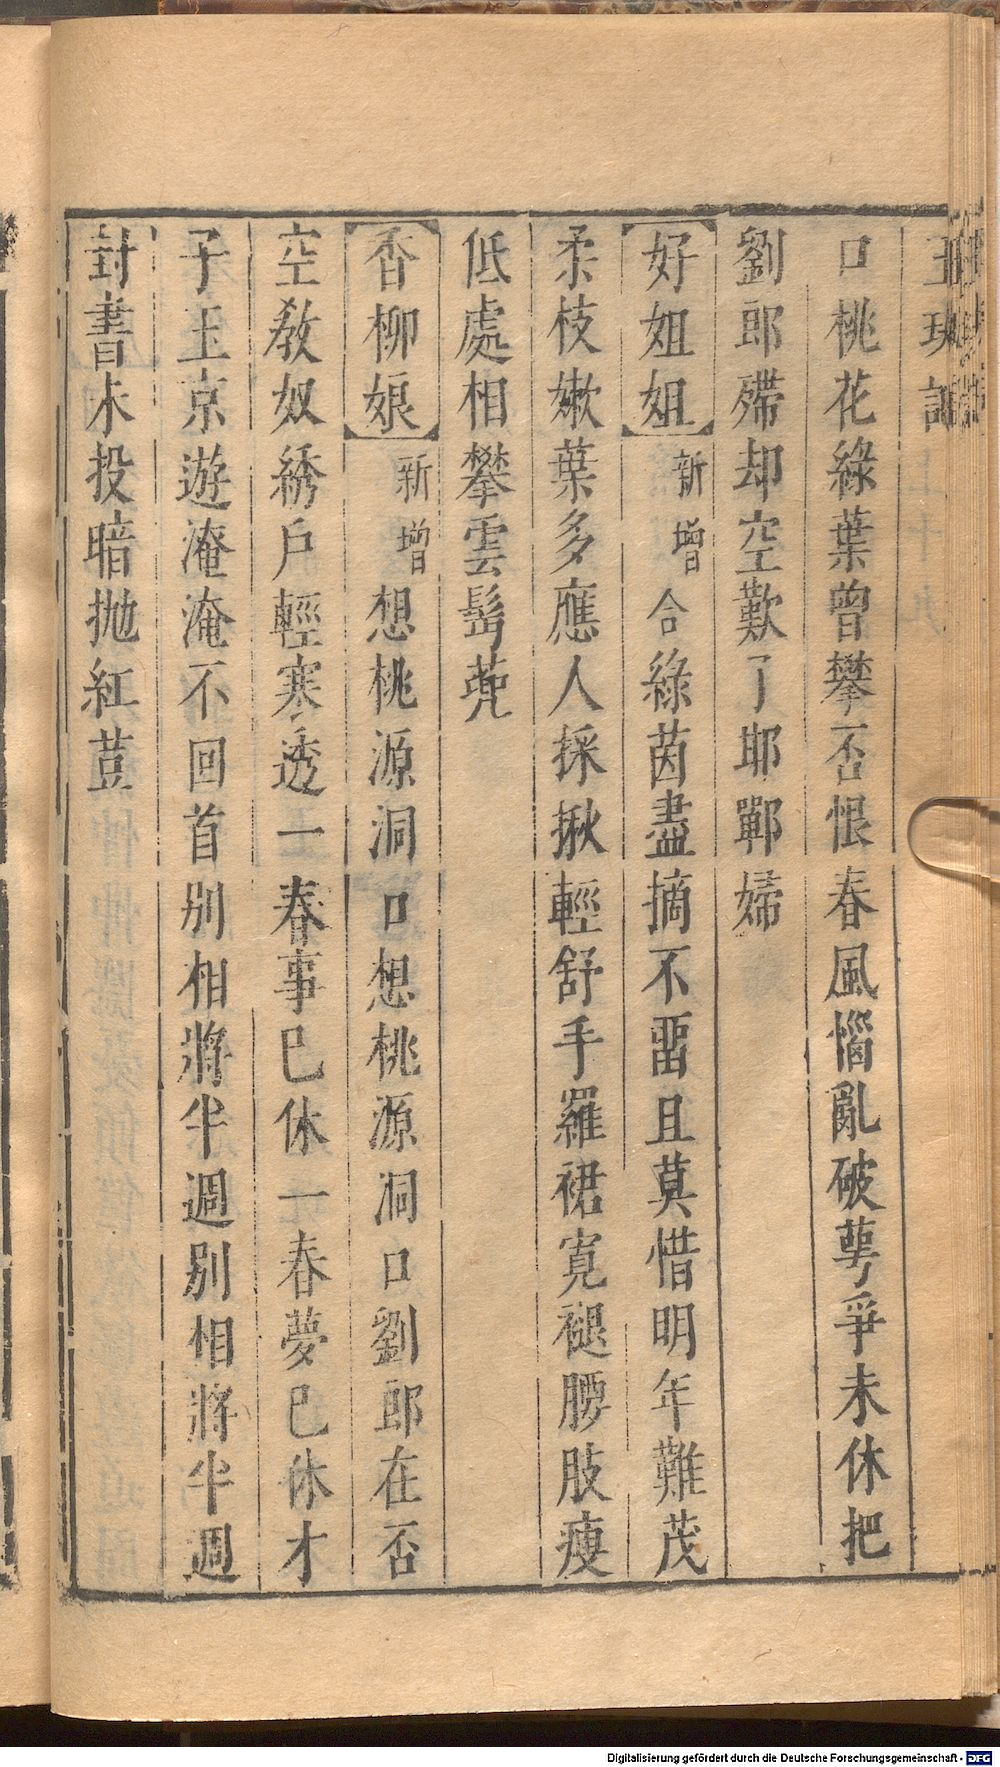 玉玦記
口桃花綠葉曾攀否恨春風惱亂破萼爭未休把
劉郎殢却空歎了耶鄲婦
好姐姐 新增 合綠茵盡摘不畱且莫惜明年難茂
柔枝嫰葉多應人採揪輕舒手羅裙寛褪腰肢瘦
低處相攀雲髩䔃
香柳娘 新增 想桃源洞口想桃源洞口劉郎在否
空教奴綉戶輕寒透一春事已休一春夢已休才
子玉京遊淹淹不回首别相將半週别相將半週
封書未投暗拋紅荳
Digitalisierung gefördert durch die Deutsche Forschungsgemeinschaft - DFG